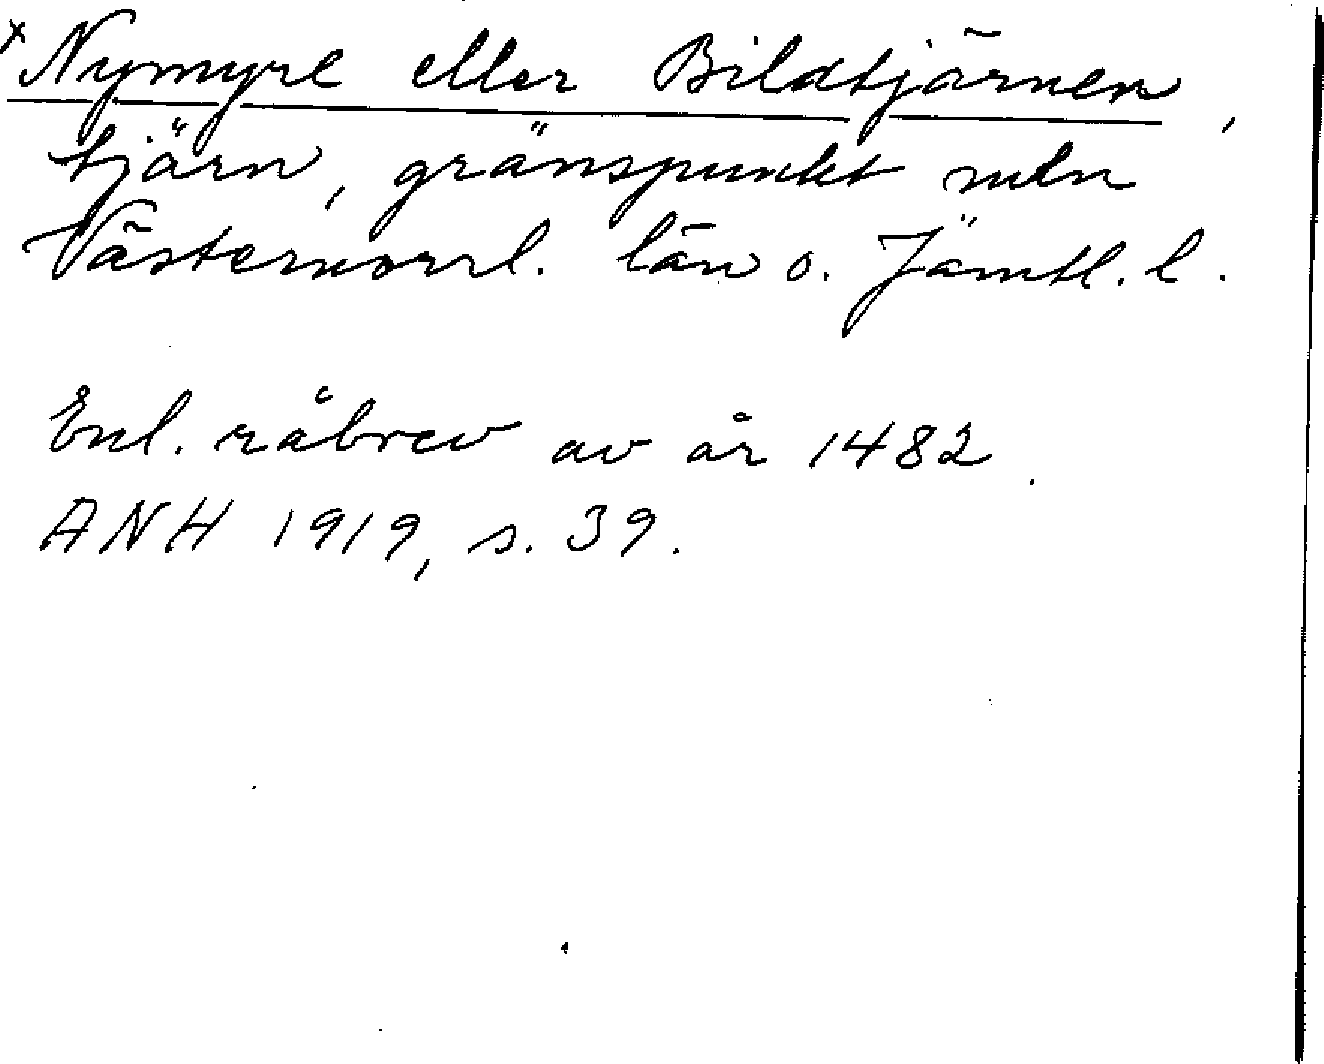 x Nymyre eller Bildtjärnen,
tjärn, gränspunkt mln
Västernorrl. län o. Jämtl. l.
Enl. råbrev av år 1482.
ANH 1919, s. 39.